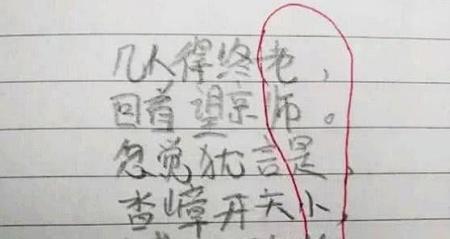 几人得终老，
回首望京师。
忽觉犹言是，
沓嶂开天小，